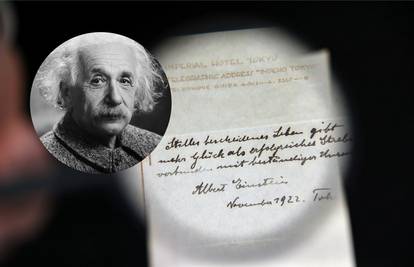 IMPERIAL HOTEL TOKYO
TELEGRAPHIC ADDRESS
Stilles bescheidenes Leben gibt
mehr Glück als erfolgreiches Streben
verbunden mit beständiger Unruhe
Albert Einstein
November 1922. Tok